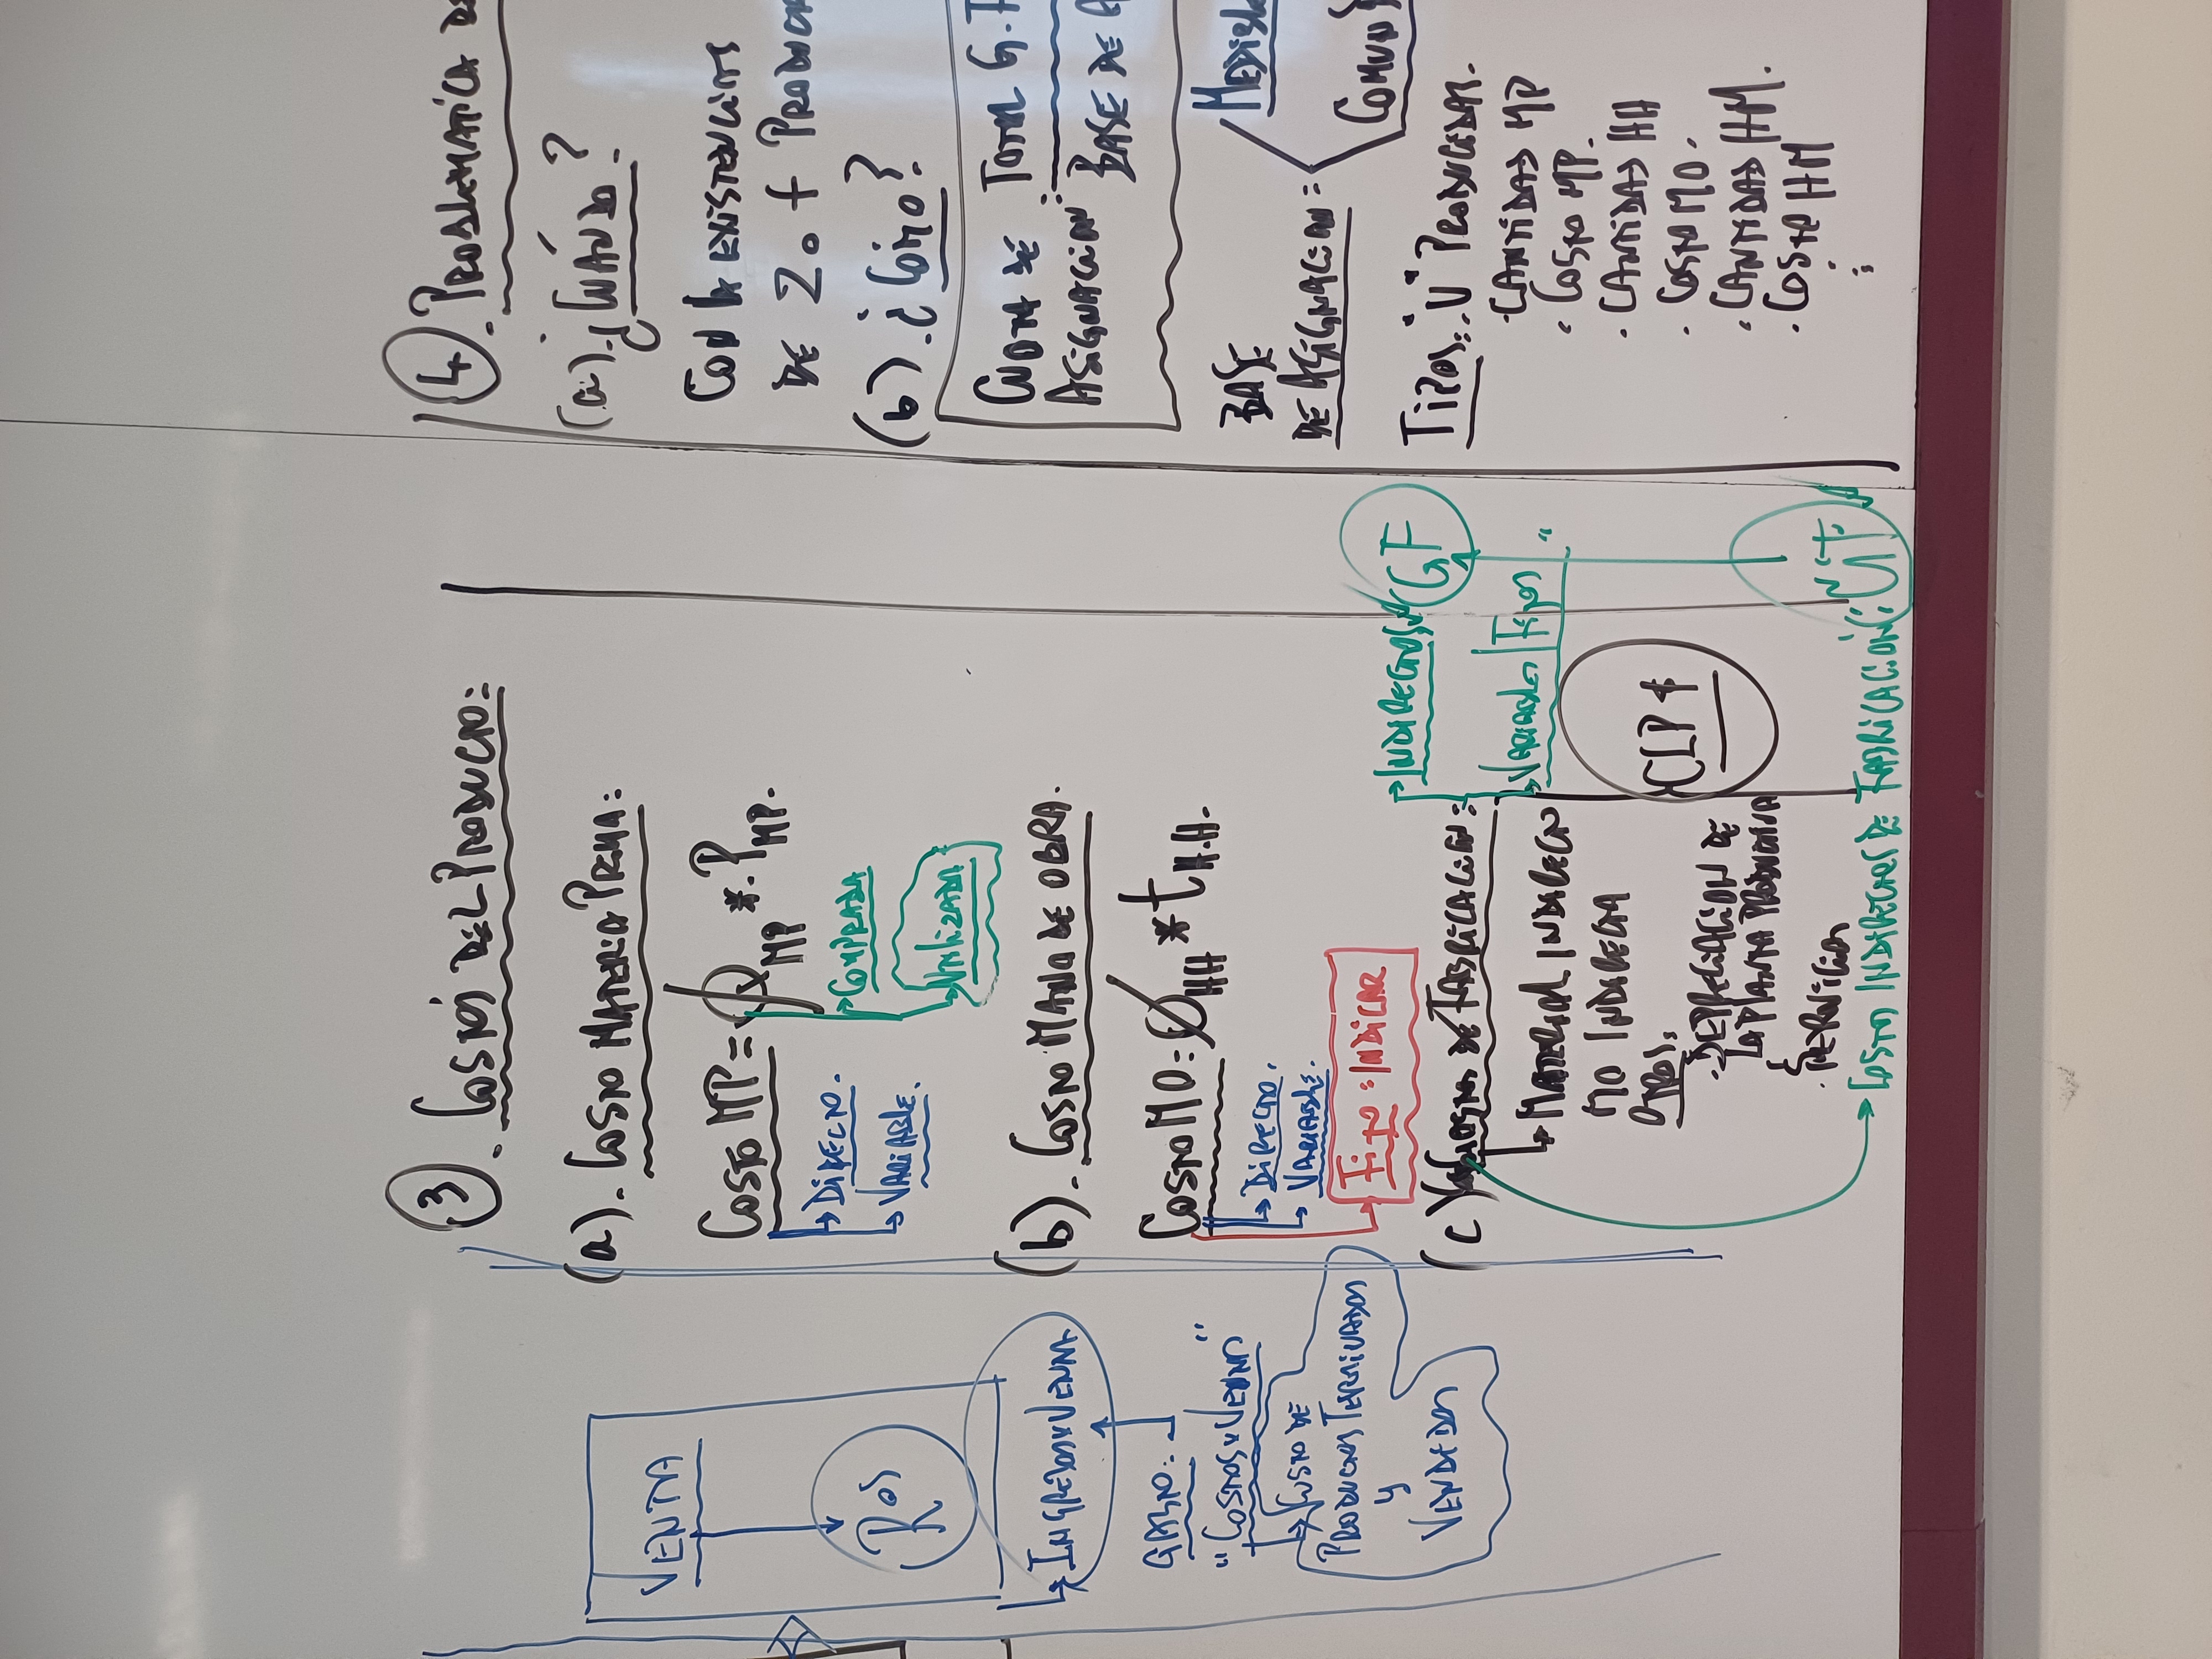 VENTA
Ros
INGRESOS x VENTA
GASTO:
"COSTOS x VENTA"
COSTO DE
PRODUCTOS TERMINADOS
Y
VENDIDOS
3. COSTOS DEL PRODUCTO:
(a). COSTO MATERIA PRIMA:
COSTO MP = Q MP * P MP.
DIRECTO.
VARIABLE.
COMPRADA
UTILIZADA
(b). COSTO MANO DE OBRA.
COSTO MO = Ø HH * t H.H.
DIRECTO.
VARIABLE.
FIJO : INDICAR
(c) GASTOS DE FABRICACION:
INDIRECTOS
GF
VARIABLES / FIJOS
MATERIAL INDIRECTO
MO INDIRECTA
OTROS:
. DEPRECIACION DE
LA PLANTA PRODUCTIVA
CLP $
COSTOS INDIRECTOS DE FABRICACION:
4. PROBLEMATICA DE
(a). ¿CUÁNDO?
CON LA EXISTENCIAS
DE 2 o + PRODUC
(b). ¿CÓMO?
CUOTA DE ASIGNACION: TOTAL G.F
BASE DE
BASE
DE ASIGNACION =
MEDIBL
COMUN
TIPOS: . "U" PRODUCIDAS.
. CANTIDAD MP
. COSTO MP.
. CANTIDAD HH
. COSTO MO.
. CANTIDAD HM.
. COSTO HM